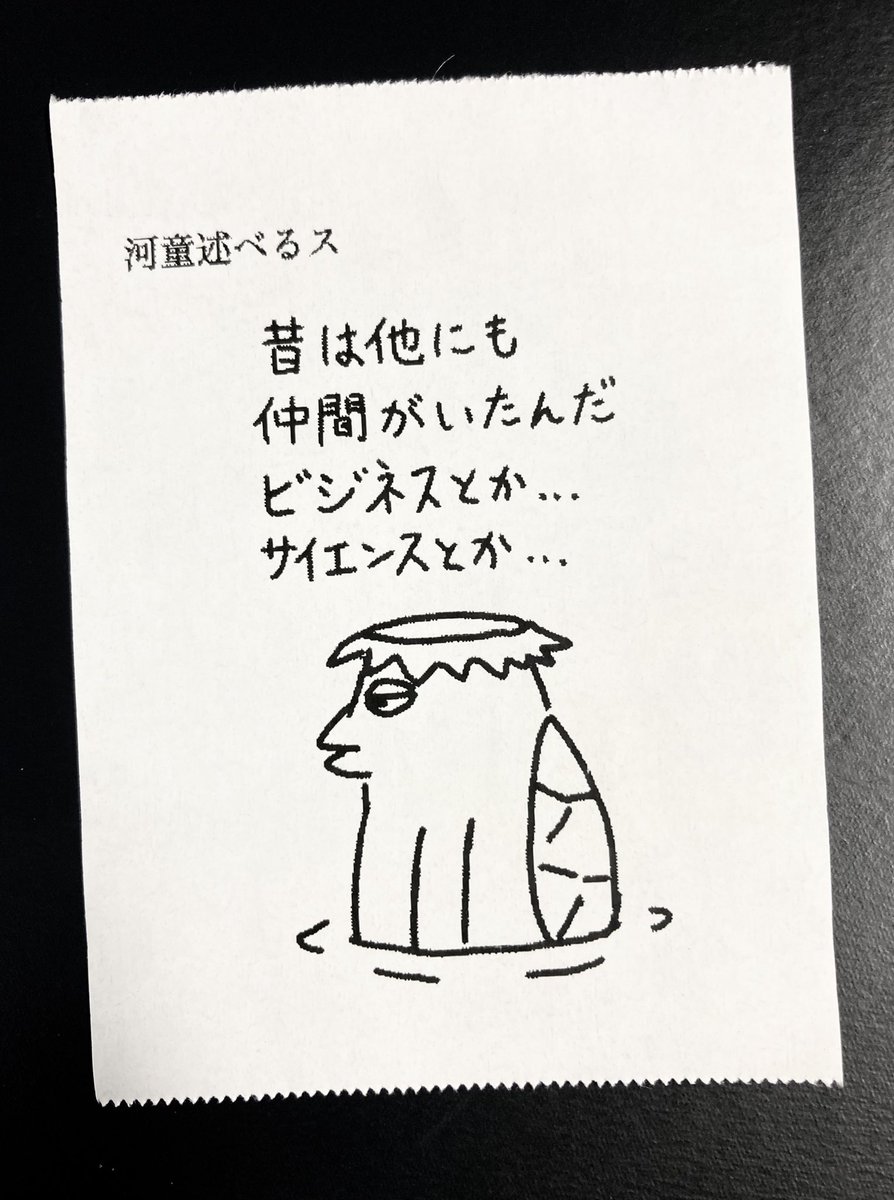 河童述べるス
昔は他にも
仲間がいたんだ
ビジネスとか…
サイエンスとか…